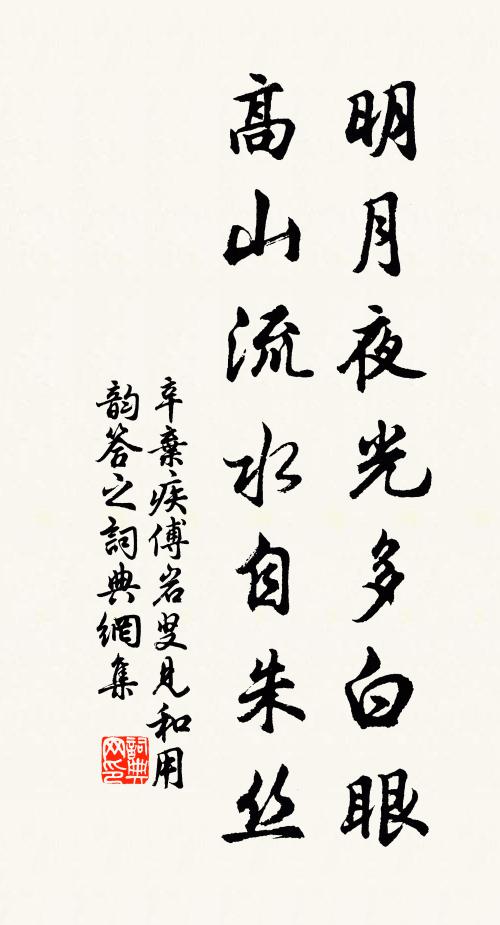 明月夜光多白眼
高山流水自朱丝
辛棄疾傅岩叟見和用
韵答之詞典網集
詞典
网印